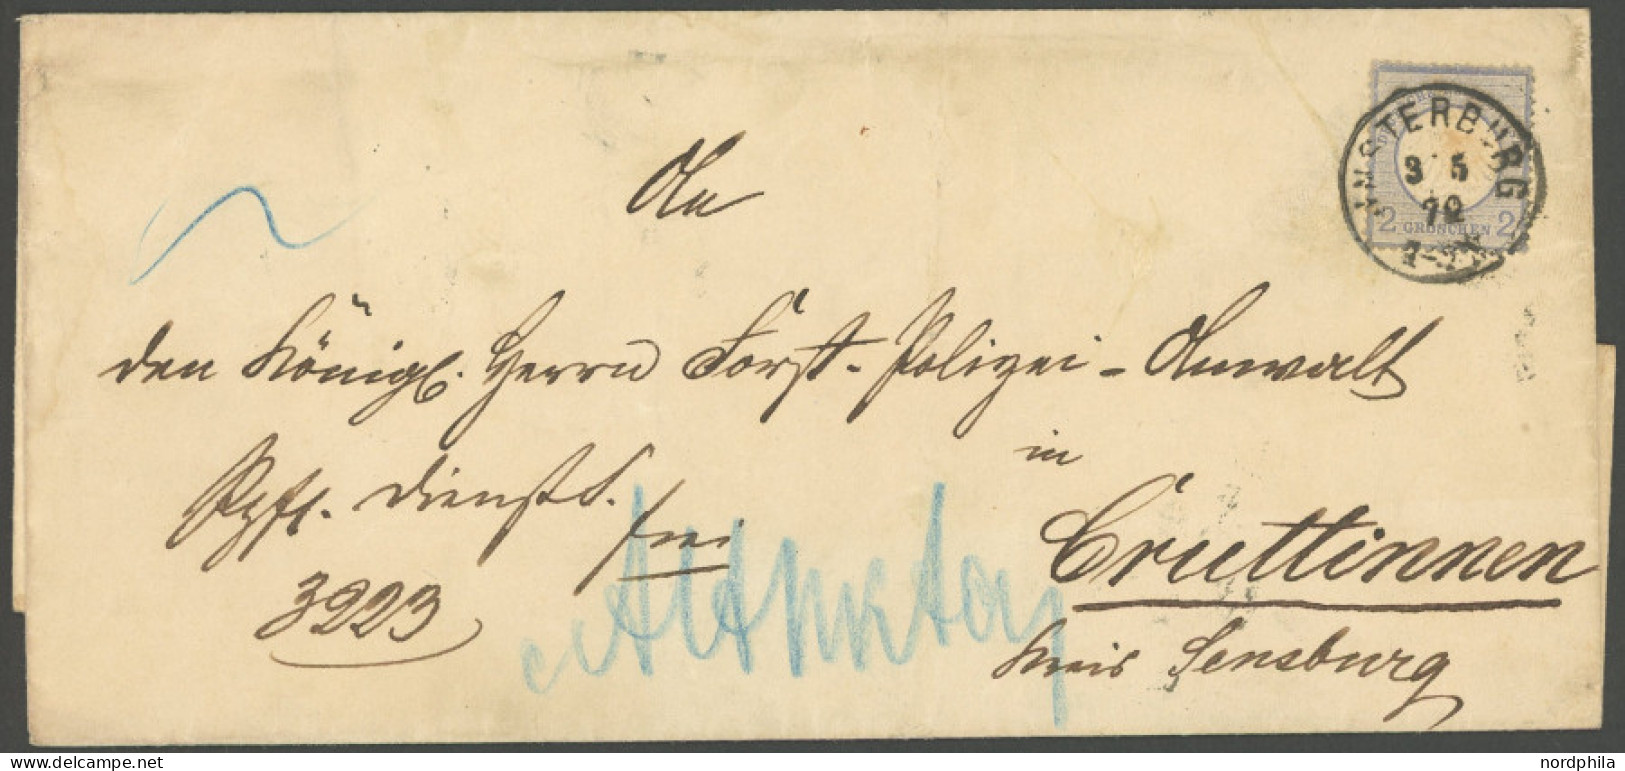 INSTERBURG
3 5
72
2 GROSCHEN 2
An
den Königl. Herrn Forst-Polizei-Anwalt
in
Cruttinnen
Kreis Sensburg
frei
3223
nordphila